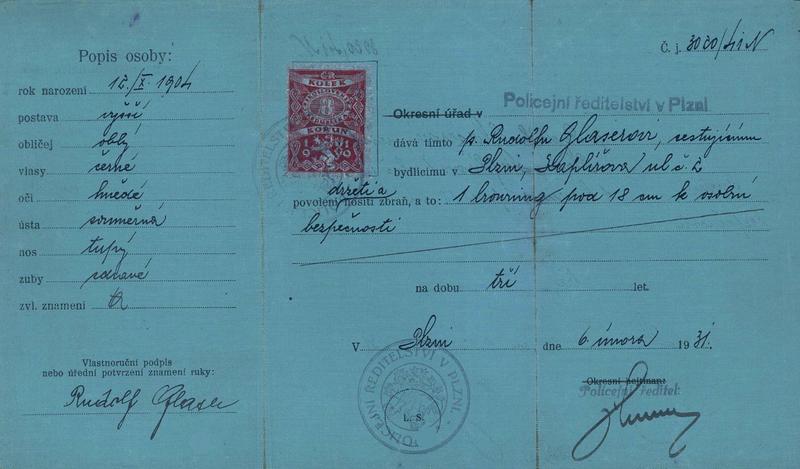 Popis osoby:
rok narození 12./X. 1904
postava vyšší
obličej oblý
vlasy černé
oči hnědé
ústa souměrná
nos tupý
zuby zdravé
zvl. znamení
Vlastnoruční podpis
nebo úřední potvrzení znamení ruky:
Rudolf Glaser
KOLEK
8
KORUN
1919
Č. j. 3020/41 N
Okresní úřad v Policejní ředitelství v Plzni
dává tímto p. Rudolfu Glaserovi, cestujícímu
bydlícímu v Plzni, Šaplířova ul č. 2
držeti a
povolení nositi zbraň, a to: 1 browning pod 18 cm k osobní
bezpečnosti
na dobu tří let.
V Plzni dne 6 února 1931.
POLICEJNÍ ŘEDITELSTVÍ V PLZNI
L. S.
Okresní hejtman:
Policejní ředitel: